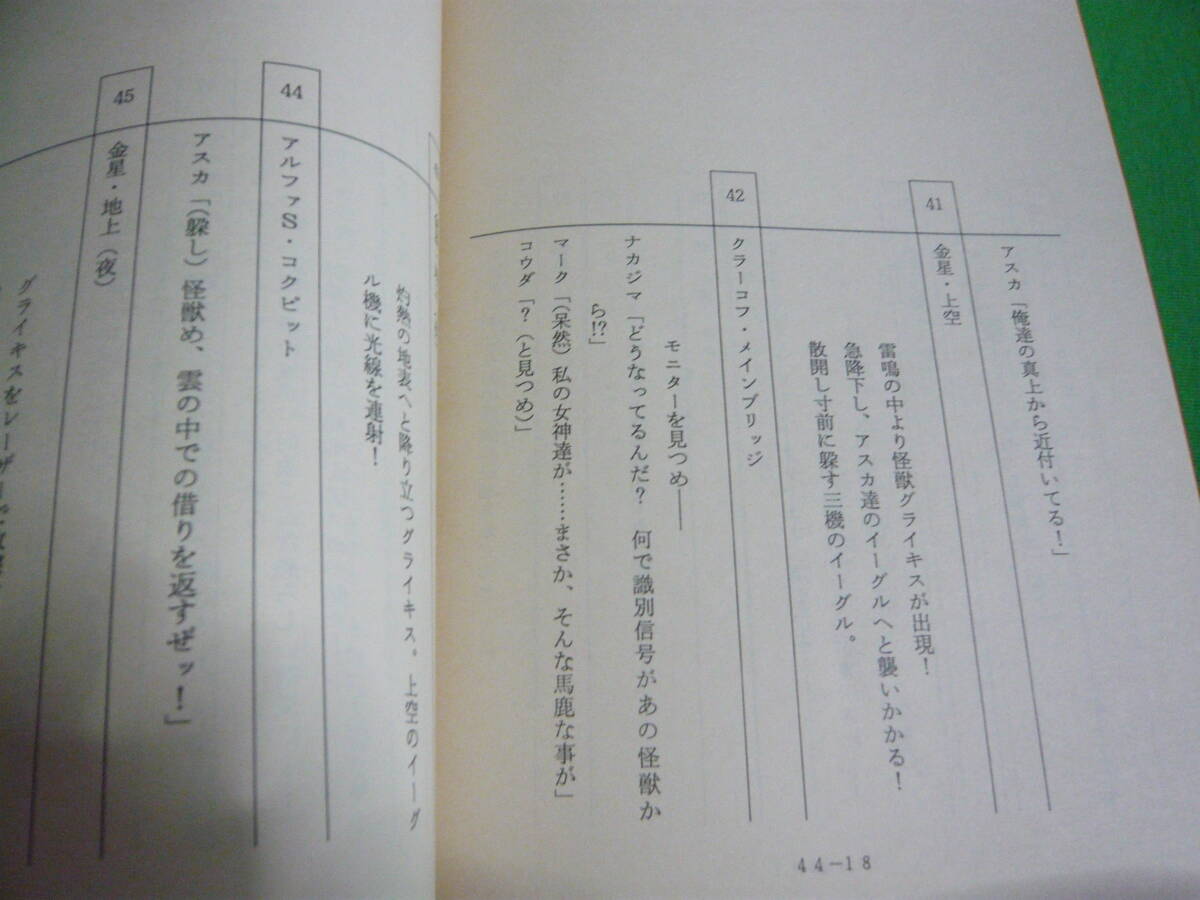 アスカ「俺達の真上から近付いてる！」
41
金星・上空
雷鳴の中より怪獣グライキスが出現！
急降下し、アスカ達のイーグルへと襲いかかる！
散開し寸前に躱す三機のイーグル。
42
クラーコフ・メインブリッジ
モニターを見つめ――
ナカジマ「どうなってるんだ？　何で識別信号があの怪獣か
ら!?」
マーク「（呆然）私の女神達が……まさか、そんな馬鹿な事が」
コウダ「？（と見つめ）」
44－18
灼熱の地表へと降り立つグライキス。上空のイーグ
ル機に光線を連射！
44
アルファS・コクピット
アスカ「（躱し）怪獣め、雲の中での借りを返すぜッ！」
45
金星・地上（夜）
グライキスをレーザーで